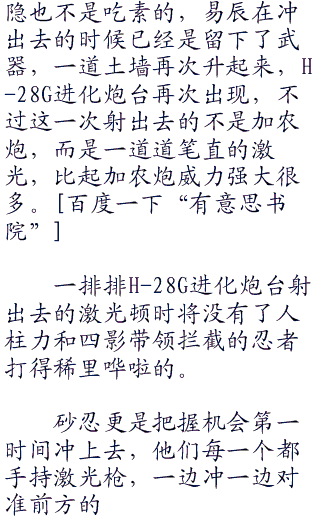 隐也不是吃素的，易辰在冲
出去的时候已经是留下了武
器，一道土墙再次升起来，H
-28G进化炮台再次出现，不
过这一次射出去的不是加农
炮，而是一道道笔直的激
光，比起加农炮威力强大很
多。[百度一下“有意思书
院”]
一排排H-28G进化炮台射
出去的激光顿时将没有了人
柱力和四影带领拦截的忍者
打得稀里哗啦的。
砂忍更是把握机会第一
时间冲上去，他们每一个都
手持激光枪，一边冲一边对
准前方的